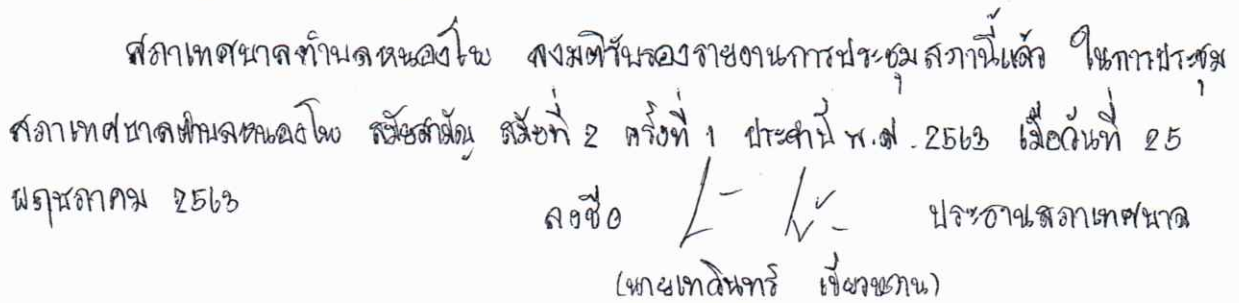 สภาเทศบาลตำบลหนองโพ ลงมติรับรองรายงานการประชุมสภานี้แล้ว ในการประชุม
สภาเทศบาลตำบลหนองโพ สมัยสามัญ สมัยที่ 2 ครั้งที่ 1 ประจำปี พ.ศ. 2563 เมื่อวันที่ 25
พฤษภาคม 2563 ลงชื่อ ประธานสภาเทศบาล
(นายเทวินทร์ เขียวหวาน)